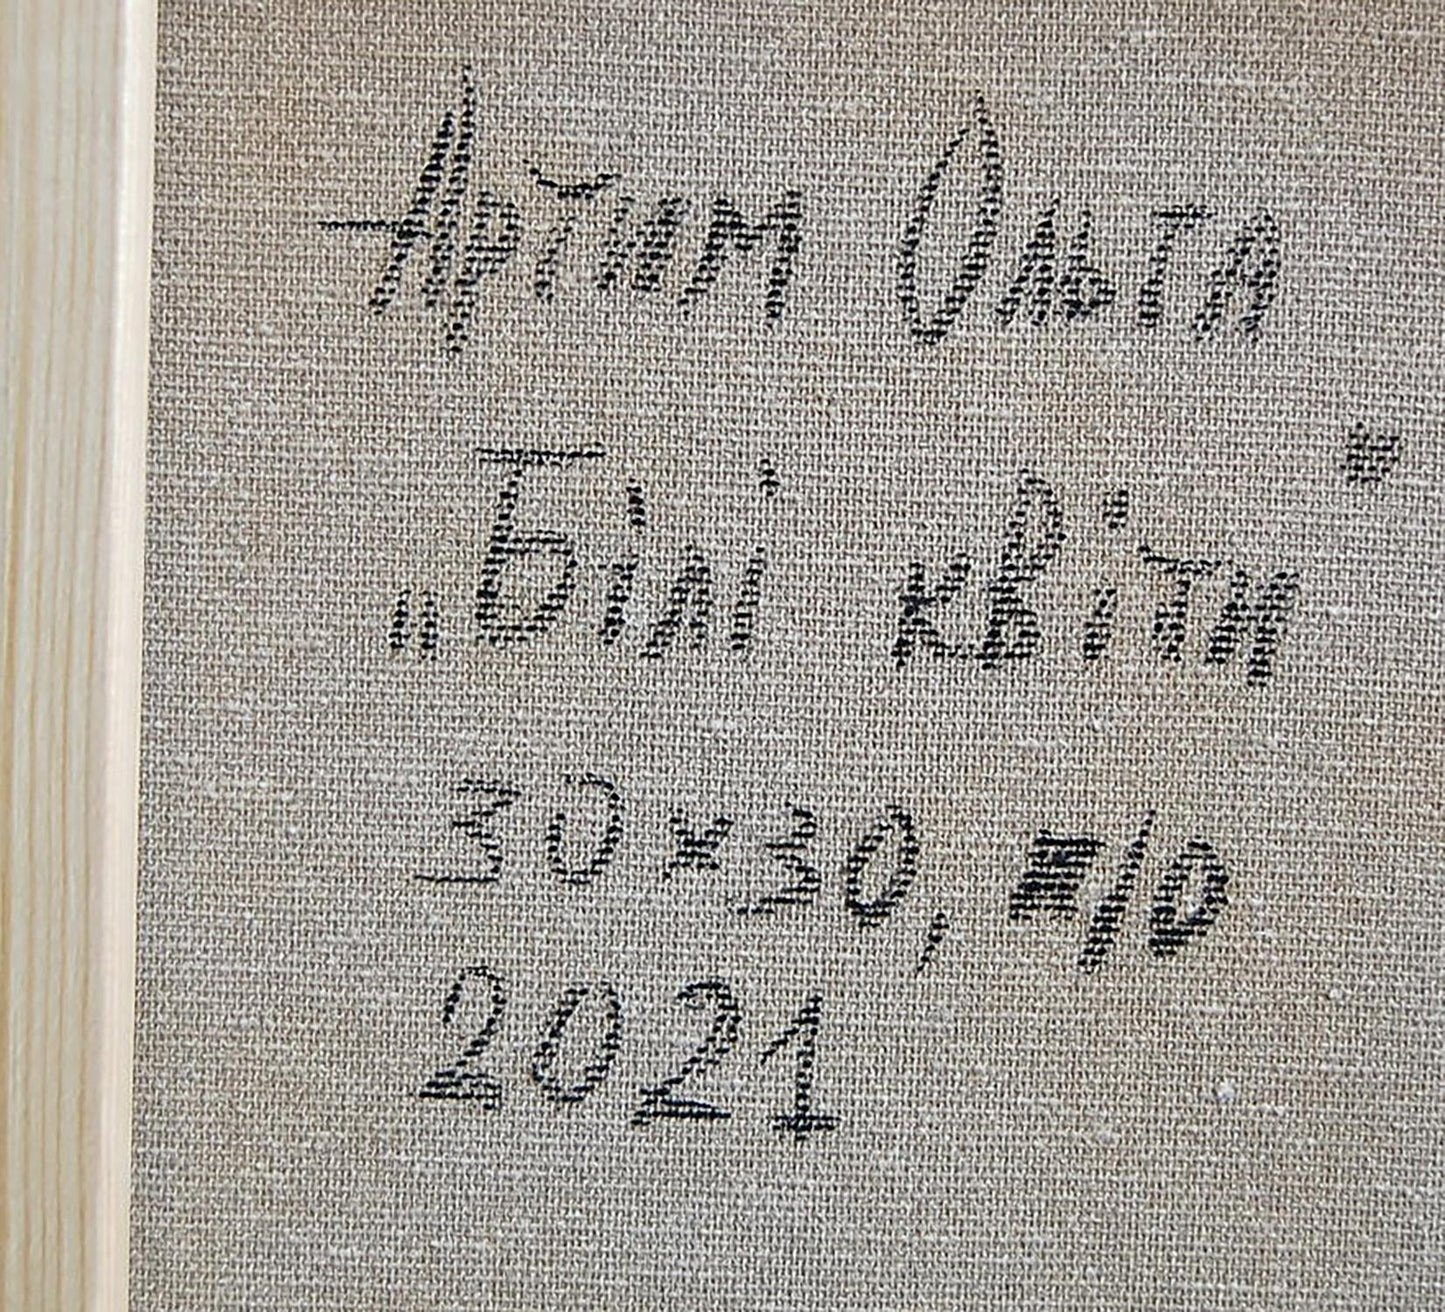 Артим Ольга
„Білі квіти"
30×30, п/о
2021